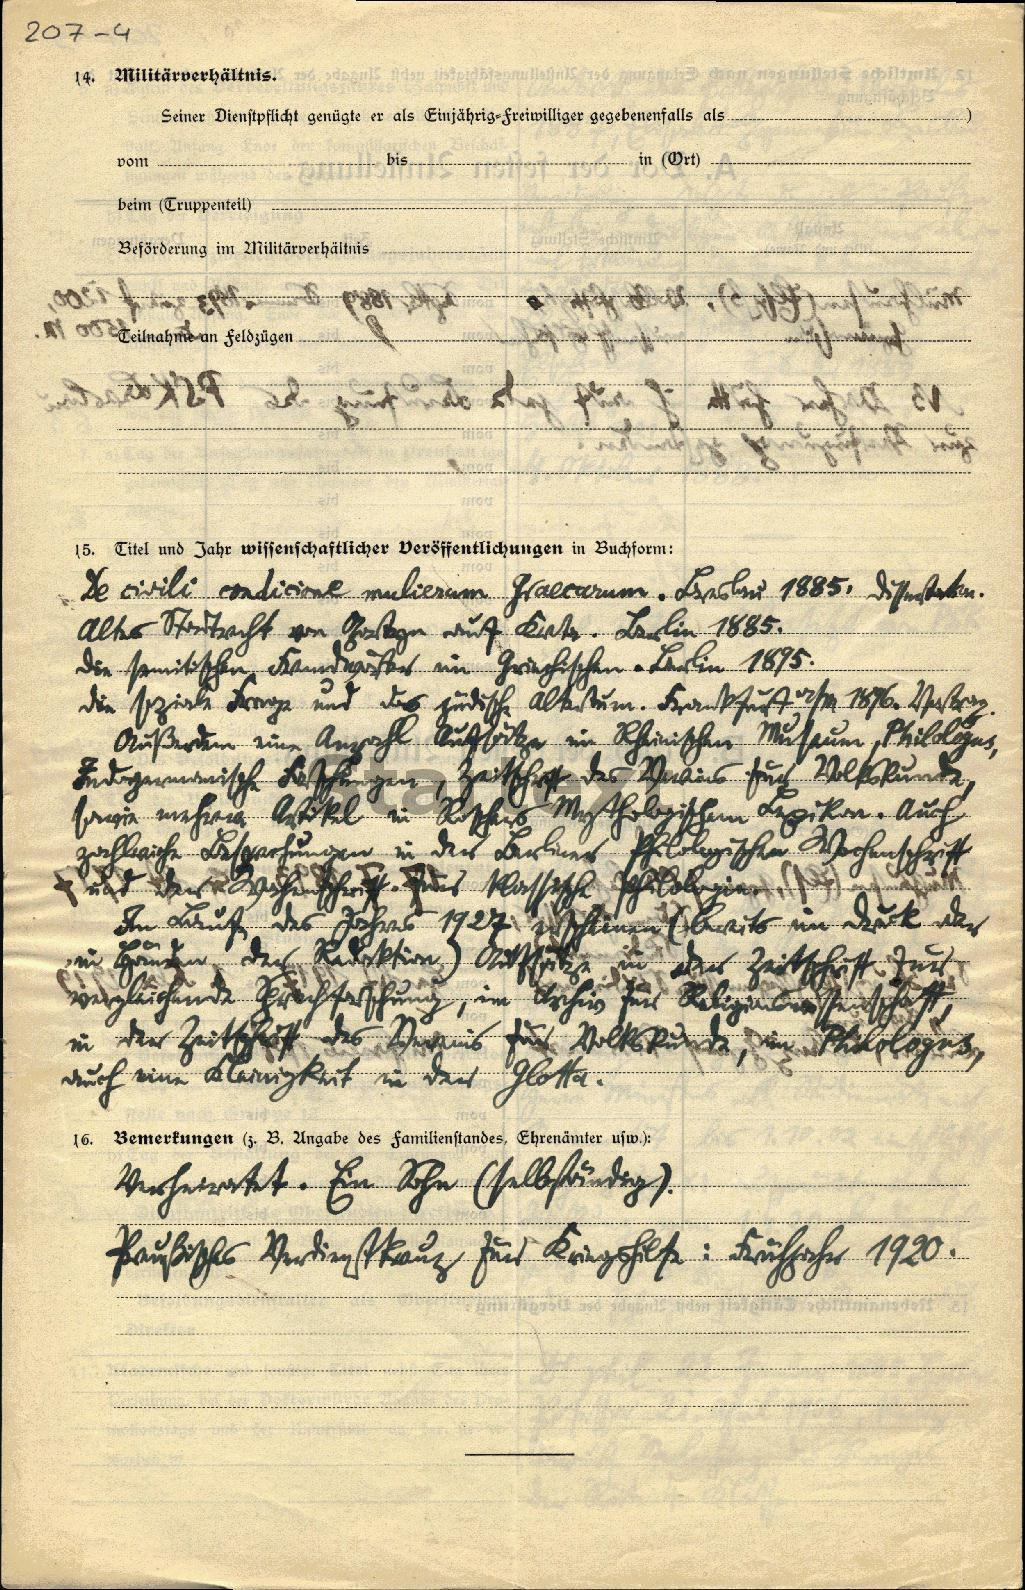 207-4
14. Militärverhältnis.
Seiner Dienstpflicht genügte er als Einjährig-Freiwilliger gegebenenfalls als )
vom bis in (Ort)
beim (Truppenteil)
Beförderung im Militärverhältnis
Teilnahme an Feldzügen
15. Titel und Jahr wissenschaftlicher Veröffentlichungen in Buchform:
De civili condicione mulierum Graecarum. Breslau 1885. Dissertation.
Altes Stadtrecht von Gortyn auf Kreta. Berlin 1885.
Die semitischen Fremdwörter im Griechischen. Berlin 1895.
Die soziale Frage und das jüdische Altertum. Frankfurt a/M 1896. Vortrag.
Außerdem eine Anzahl Aufsätze im Rheinischen Museum, Philologus,
Indogermanische Forschungen, Zeitschrift des Vereins für Volkskunde,
sowie mehrere Artikel in Roschers Mythologischem Lexikon. Auch
zahlreiche Besprechungen in der Berliner Philologischen Wochenschrift
und der Wochenschrift für klassische Philologie.
Im Laufe des Jahres 1927 erscheinen (bereits im Druck oder
in Händen der Redaktion) Aufsätze in der Zeitschrift für
vergleichende Sprachforschung, im Archiv für Religionswissenschaft,
in der Zeitschrift des Vereins für Volkskunde, im Philologus,
auch eine Kleinigkeit in der Glotta.
16. Bemerkungen (z. B. Angabe des Familienstandes, Ehrenämter usw.):
Verheiratet. Ein Sohn (selbständig).
Preußisches Verdienstkreuz für Kriegshilfe: Frühjahr 1920.